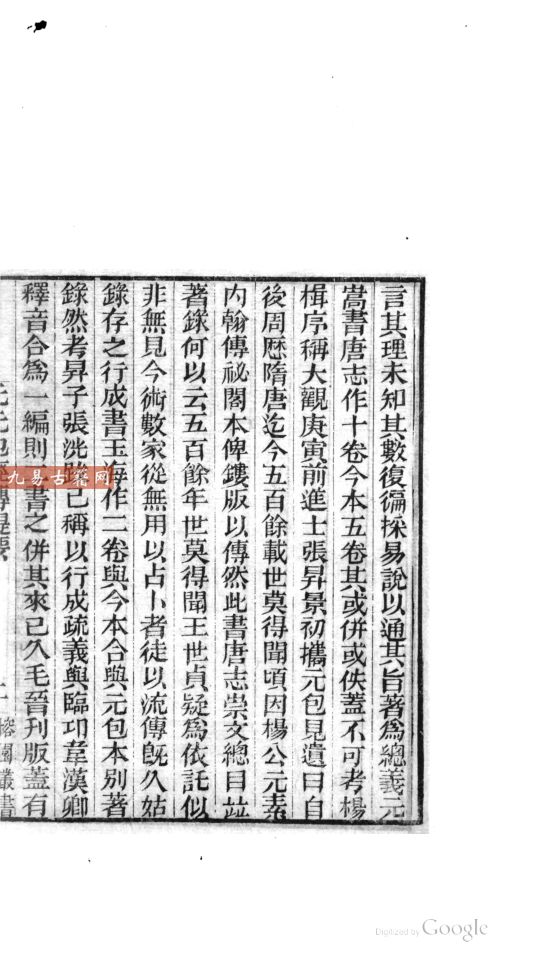 言其理未知其數復徧採易說以通其旨著爲總義元
嵩書唐志作十卷今本五卷其或併或佚蓋不可考楊
楫序稱大觀庚寅前進士張昇景初攜元包見遺曰自
後周歷隋唐迄今五百餘載世莫得聞頃因楊公元素
內翰傳祕閣本俾鏤版以傳然此書唐志崇文總目竝
著錄何以云五百餘年世莫得聞王世貞疑爲依託似
非無見今術數家從無用以占卜者徒以流傳旣久姑
錄存之行成書玉海作二卷與今本合與元包本別著
錄然考昇子張洸跋已稱以行成疏義與臨邛韋漢卿
釋音合爲一編則書之併其來已久毛晉刊版蓋有
叢書
九易古籍网
Digitized by Google